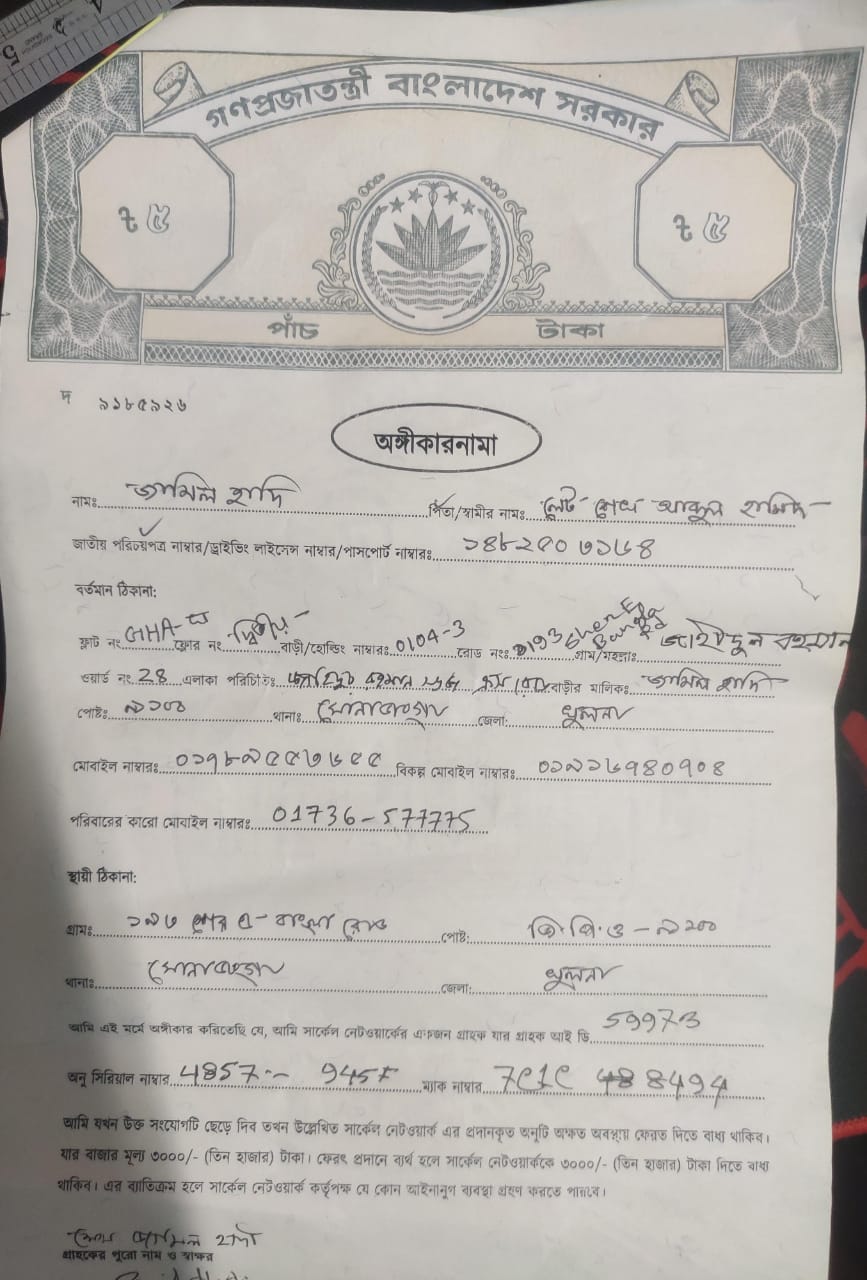 গণপ্রজাতন্ত্রী বাংলাদেশ সরকার
৳ ৫ ৳ ৫
পাঁচ টাকা
দ ৯১৮৫৯২৬
অঙ্গীকারনামা
নামঃ জামিল হাদি পিতা/স্বামীর নামঃ লেট শেখ আব্দুল হামিদ
জাতীয় পরিচয়পত্র নাম্বার/ড্রাইভিং লাইসেন্স নাম্বার/পাসপোর্ট নাম্বারঃ
বর্তমান ঠিকানা:
ফ্লাট নং GHA- ফ্লোর নং দ্বিতীয় বাড়ী/হোল্ডিং নাম্বারঃ 0104-3 রোড নংঃ 0193 Sher E Bangla গ্রাম/মহল্লাঃ জাহীদুল রহমান
ওয়ার্ড নং 28 এলাকা পরিচিতিঃ জাহিদুর রহমান বাড়ীর মালিকঃ জামিল হাদি
পোষ্টঃ ৯১০০ থানাঃ সোনাডাঙ্গা জেলা: খুলনা
মোবাইল নাম্বারঃ বিকল্প মোবাইল নাম্বারঃ
পরিবারের কারো মোবাইল নাম্বারঃ 01736-577775
স্থায়ী ঠিকানা:
গ্রামঃ ১৯৩ শের এ-বাংলা রোড পোষ্ট: জি.পি.ও-৯১০০
থানাঃ সোনাডাঙ্গা জেলা: খুলনা
আমি এই মর্মে অঙ্গীকার করিতেছি যে, আমি সার্কেল নেটওয়ার্কের একজন গ্রাহক যার গ্রাহক আই ডি 59973
অনু সিরিয়াল নাম্বার 4857 ম্যাক নাম্বার
আমি যখন উক্ত সংযোগটি ছেড়ে দিব তখন উল্লেখিত সার্কেল নেটওয়ার্ক এর প্রদানকৃত অনুটি অক্ষত অবস্থায় ফেরত দিতে বাধ্য থাকিব।
যার বাজার মূল্য ৩০০০/- (তিন হাজার) টাকা। ফেরৎ প্রদানে ব্যর্থ হলে সার্কেল নেটওয়ার্ককে ৩০০০/- (তিন হাজার) টাকা দিতে বাধ্য
থাকিব। এর ব্যতিক্রম হলে সার্কেল নেটওয়ার্ক কর্তৃপক্ষ যে কোন আইনানুগ ব্যবস্থা গ্রহণ করতে পারবে।
শেখ জামিল হাদী
গ্রাহকের পুরো নাম ও স্বাক্ষর